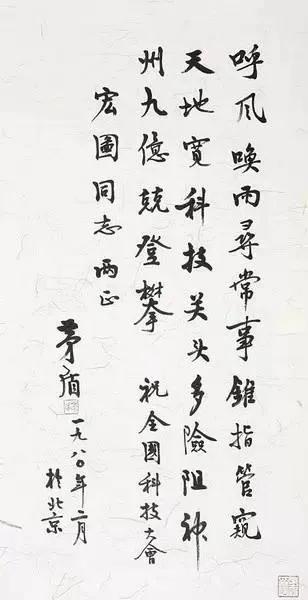 呼风唤雨寻常事錐指管窺
天地寬科技关头多險阻神
州九億競登攀 祝全國科技大會
宏圖同志 两正
茅盾 一九八〇年二月
於北京